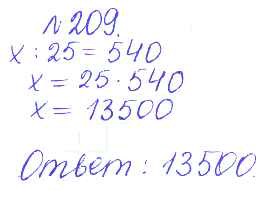 № 209.
x : 25 = 540
x = 25 · 540
x = 13500
Ответ : 13500.